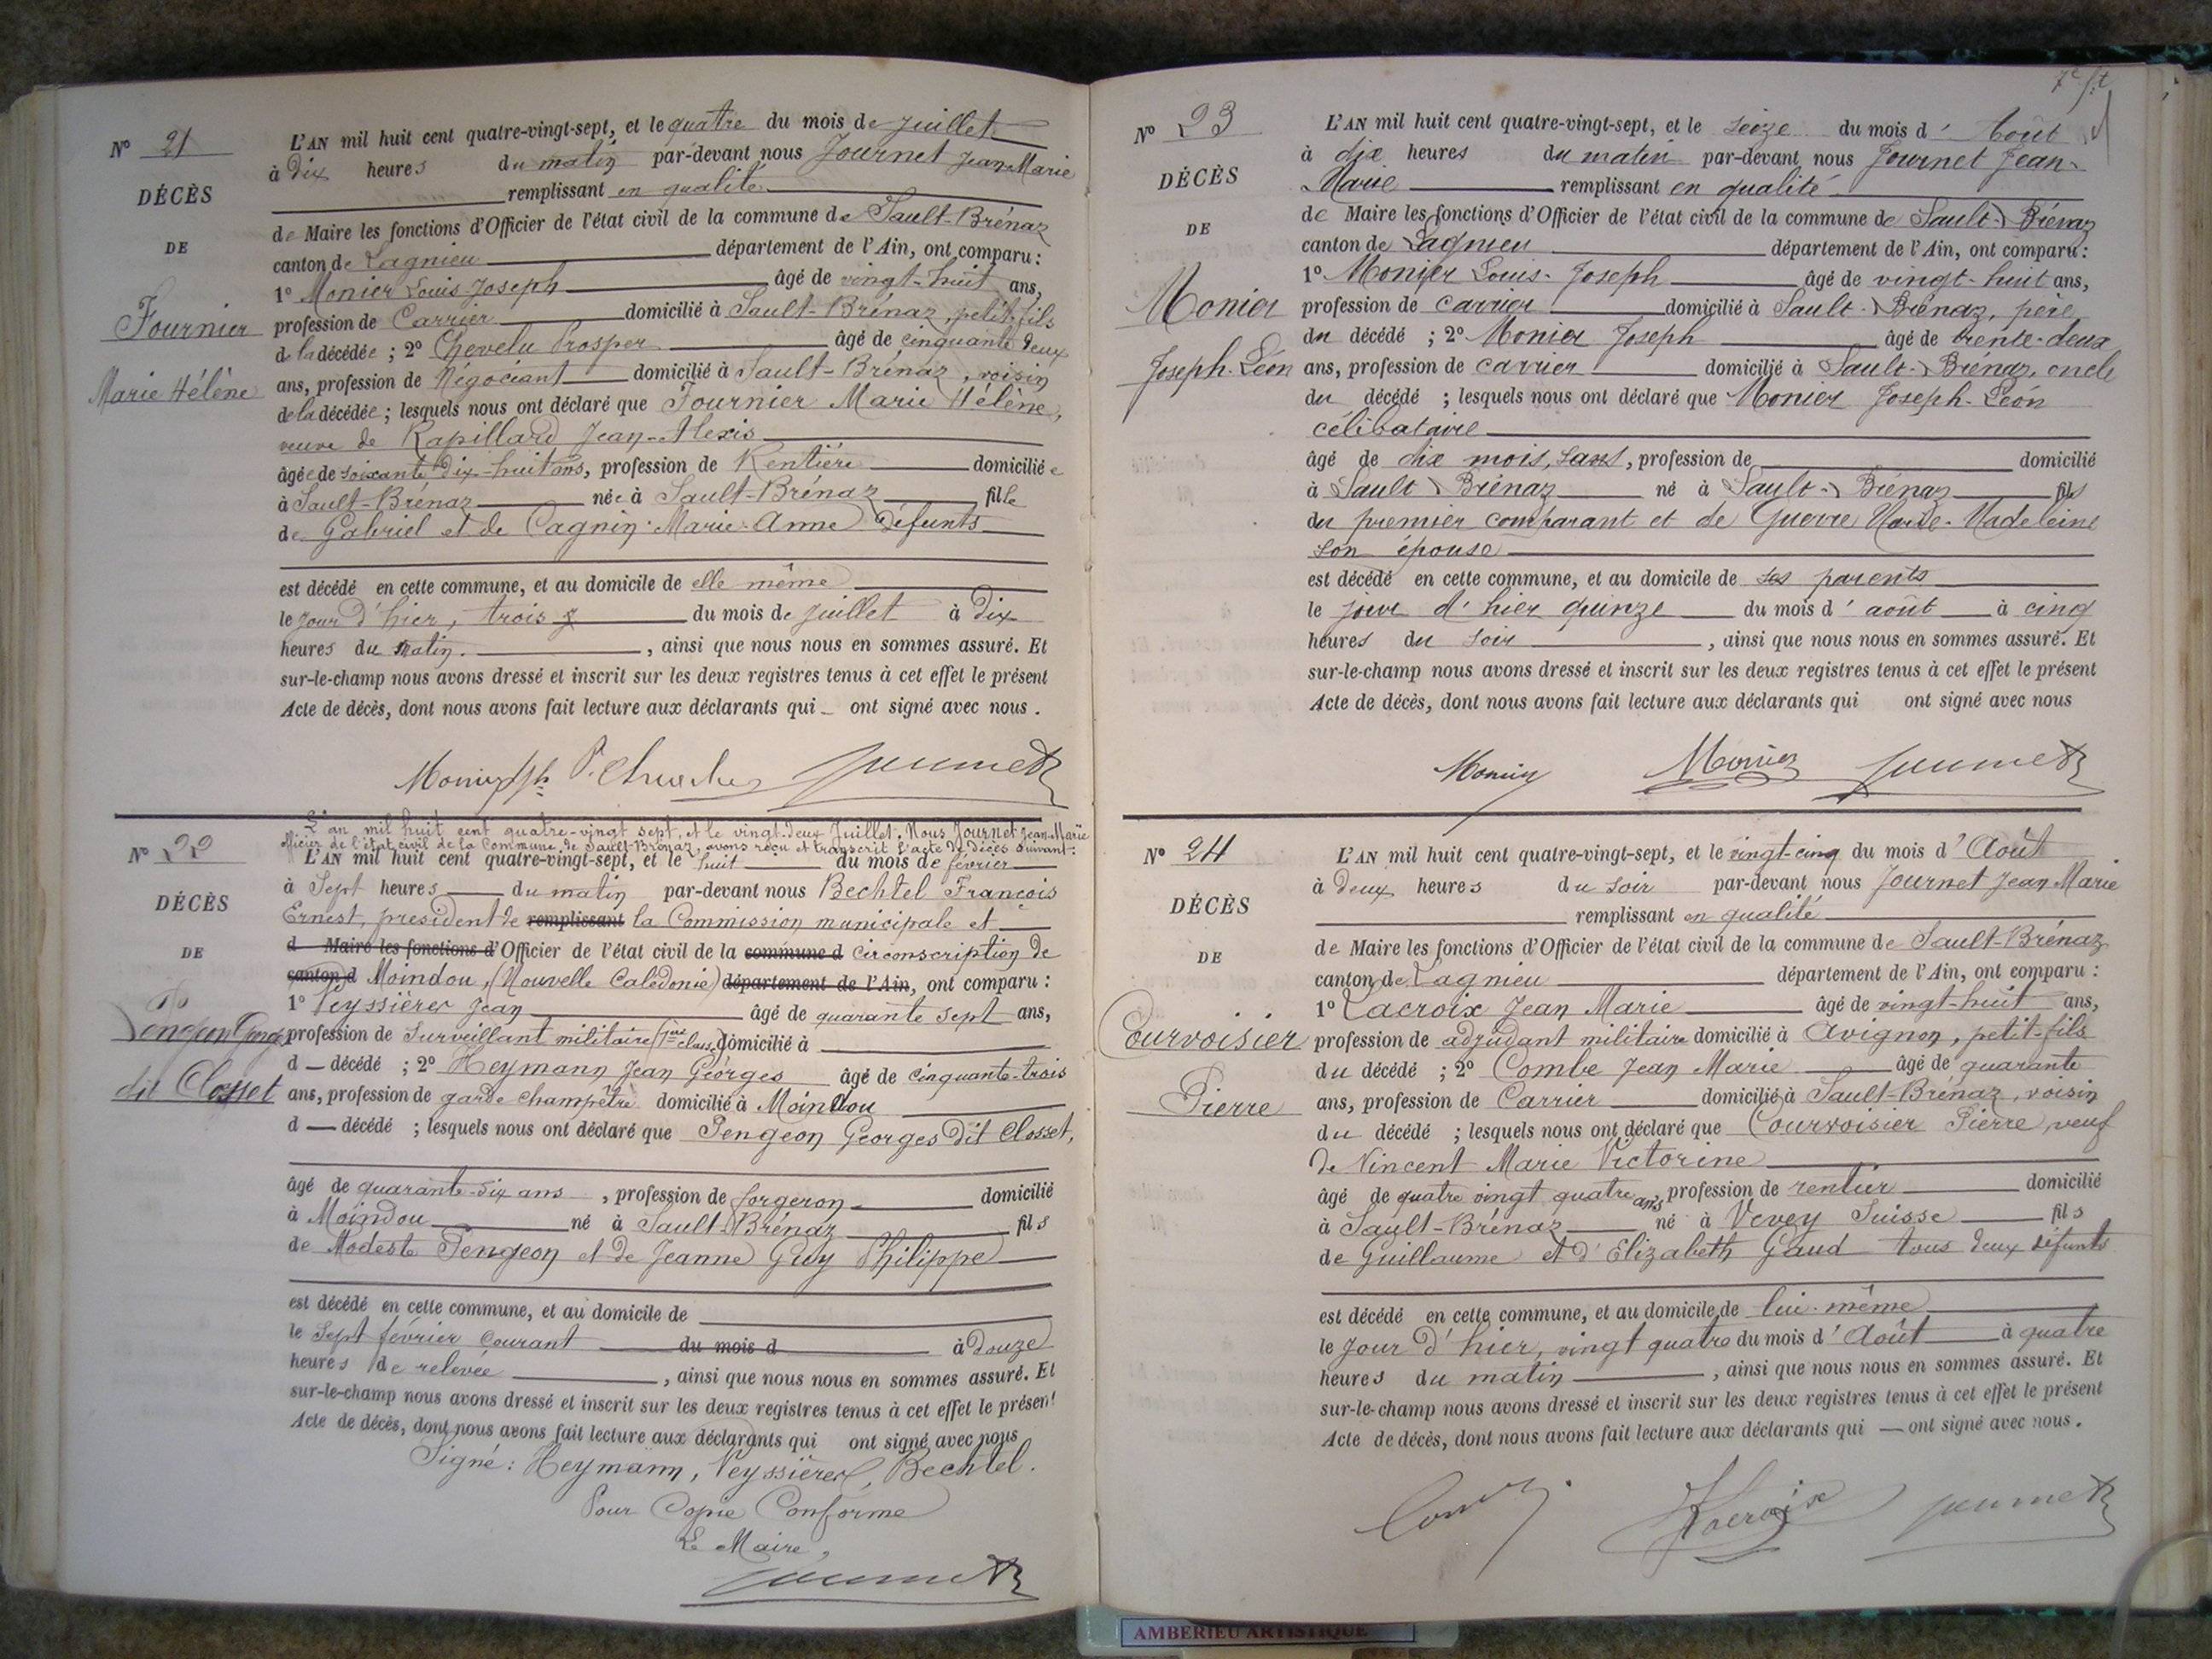 N° 21
DÉCÈS
DE
Fournier
Marie Hélène
L'AN mil huit cent quatre-vingt-sept, et le quatre du mois de juillet
à Dix heures du matin par-devant nous Journet Jean Marie
remplissant en qualité
de Maire les fonctions d'Officier de l'état civil de la commune de Sault-Brénaz
canton de Lagnieu département de l'Ain, ont comparu :
1° Monier Louis Joseph âgé de vingt-huit ans,
profession de Carrier domicilié à Sault-Brénaz, petit-fils
de la décédée ; 2° Chevelu Prosper âgé de cinquante deux
ans, profession de Négociant domicilié à Sault-Brénaz, voisin
de la décédée ; lesquels nous ont déclaré que Fournier Marie Hélène,
veuve de Rapillard Jean-Alexis
âgée de soixante dix-huit ans, profession de Rentière domiciliée
à Sault-Brénaz née à Sault-Brénaz fille
de Gabriel et de Cagnin Marie-Anne défunts
est décédé en cette commune, et au domicile de elle même
le jour d'hier, trois du mois de juillet à Dix
heures du matin. , ainsi que nous nous en sommes assuré. Et
sur-le-champ nous avons dressé et inscrit sur les deux registres tenus à cet effet le présent
Acte de décès, dont nous avons fait lecture aux déclarants qui ont signé avec nous.
N° 22
DÉCÈS
DE
Georges
dit Closset
L'an mil huit cent quatre-vingt sept, et le vingt-deux Juillet, Nous Journet Jean-Marie
officier de l'état civil de la Commune de Sault-Brénaz, avons reçu et transcrit l'acte de décès suivant :
L'AN mil huit cent quatre-vingt-sept, et le huit du mois de février
à Sept heures du matin par-devant nous Bechtel François
Ernest, président de remplissant la Commission municipale et
d Maire les fonctions d'Officier de l'état civil de la commune d circonscription de
canton d Moindou, (Nouvelle Calédonie) département de l'Ain, ont comparu :
1° Veyssières Jean âgé de quarante sept ans,
profession de Surveillant militaire (1ère class.) domicilié à
d décédé ; 2° Heymann Jean Georges âgé de cinquante-trois
ans, profession de garde champêtre domicilié à Moindou
d décédé ; lesquels nous ont déclaré que Pengeon Georges Dit Closset,
âgé de quarante-six ans, profession de forgeron domicilié
à Moindou né à Sault-Brénaz fils
de Modeste Pengeon et de Jeanne Guy Philippe
est décédé en cette commune, et au domicile de
le Sept février courant du mois d à Douze
heures de relevée , ainsi que nous nous en sommes assuré. Et
sur-le-champ nous avons dressé et inscrit sur les deux registres tenus à cet effet le présent
Acte de décès, dont nous avons fait lecture aux déclarants qui ont signé avec nous
Signé : Heymann, Veyssières, Bechtel.
Pour Copie Conforme
Le Maire,
Journet
N° 23
DÉCÈS
DE
Monier
Joseph-Léon
L'AN mil huit cent quatre-vingt-sept, et le seize du mois d'Août
à dix heures du matin par-devant nous Journet Jean-
Marie remplissant en qualité
de Maire les fonctions d'Officier de l'état civil de la commune de Sault-Brénaz
canton de Lagnieu département de l'Ain, ont comparu :
1° Monier Louis-Joseph âgé de vingt-huit ans,
profession de carrier domicilié à Sault-Brénaz, père
du décédé ; 2° Monier Joseph âgé de trente-deux
ans, profession de carrier domicilié à Sault-Brénaz, oncle
du décédé ; lesquels nous ont déclaré que Monier Joseph-Léon
célibataire
âgé de dix mois, sans, profession de domicilié
à Sault-Brénaz né à Sault-Brénaz fils
du premier comparant et de Guerre Marie-Madeleine
son épouse
est décédé en cette commune, et au domicile de ses parents
le jour d'hier quinze du mois d'août à cinq
heures du soir , ainsi que nous nous en sommes assuré. Et
sur-le-champ nous avons dressé et inscrit sur les deux registres tenus à cet effet le présent
Acte de décès, dont nous avons fait lecture aux déclarants qui ont signé avec nous
Monier Monier Journet
N° 24
DÉCÈS
DE
Courvoisier
Pierre
L'AN mil huit cent quatre-vingt-sept, et le vingt-cinq du mois d'Août
à deux heures du soir par-devant nous Journet Jean Marie
remplissant en qualité
de Maire les fonctions d'Officier de l'état civil de la commune de Sault-Brénaz
canton de Lagnieu département de l'Ain, ont comparu :
1° Lacroix Jean Marie âgé de vingt-huit ans,
profession de adjudant militaire domicilié à Avignon, petit-fils
du décédé ; 2° Combe Jean Marie âgé de quarante
ans, profession de Carrier domicilié à Sault-Brénaz, voisin
du décédé ; lesquels nous ont déclaré que Courvoisier Pierre, veuf
de Vincent Marie Victorine
âgé de quatre vingt quatre ans, profession de rentier domicilié
à Sault-Brénaz né à Vevey Suisse fils
de Guillaume et d'Elizabeth Gaud tous deux défunts
est décédé en cette commune, et au domicile de lui-même
le jour d'hier, vingt quatre du mois d'Août à quatre
heures du matin , ainsi que nous nous en sommes assuré. Et
sur-le-champ nous avons dressé et inscrit sur les deux registres tenus à cet effet le présent
Acte de décès, dont nous avons fait lecture aux déclarants qui ont signé avec nous.
Lacroix Journet
AMBERIEU ARTISTIQUE